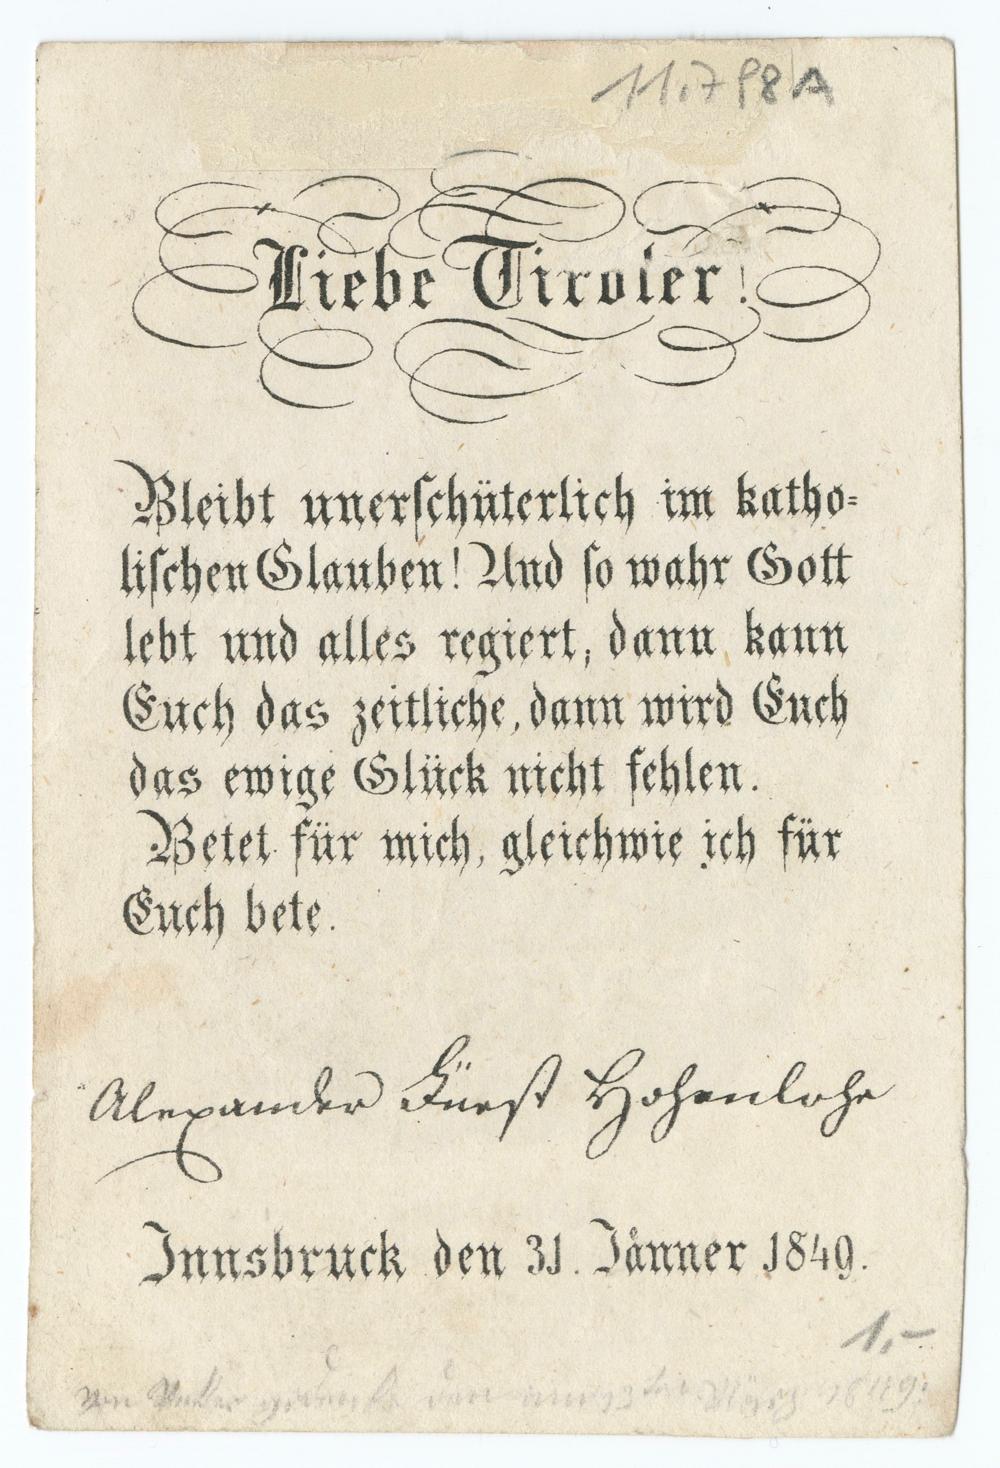 11.798A
Liebe Tiroler!
Bleibt unerschüterlich im katho=
lischen Glauben! Und so wahr Gott
lebt und alles regiert, dann kann
Euch das zeitliche, dann wird Euch
das ewige Glück nicht fehlen.
Betet für mich, gleichwie ich für
Euch bete.
Alexander Fürst Hohenlohe
Innsbruck den 31. Jänner 1849.
1,-
März 1849.